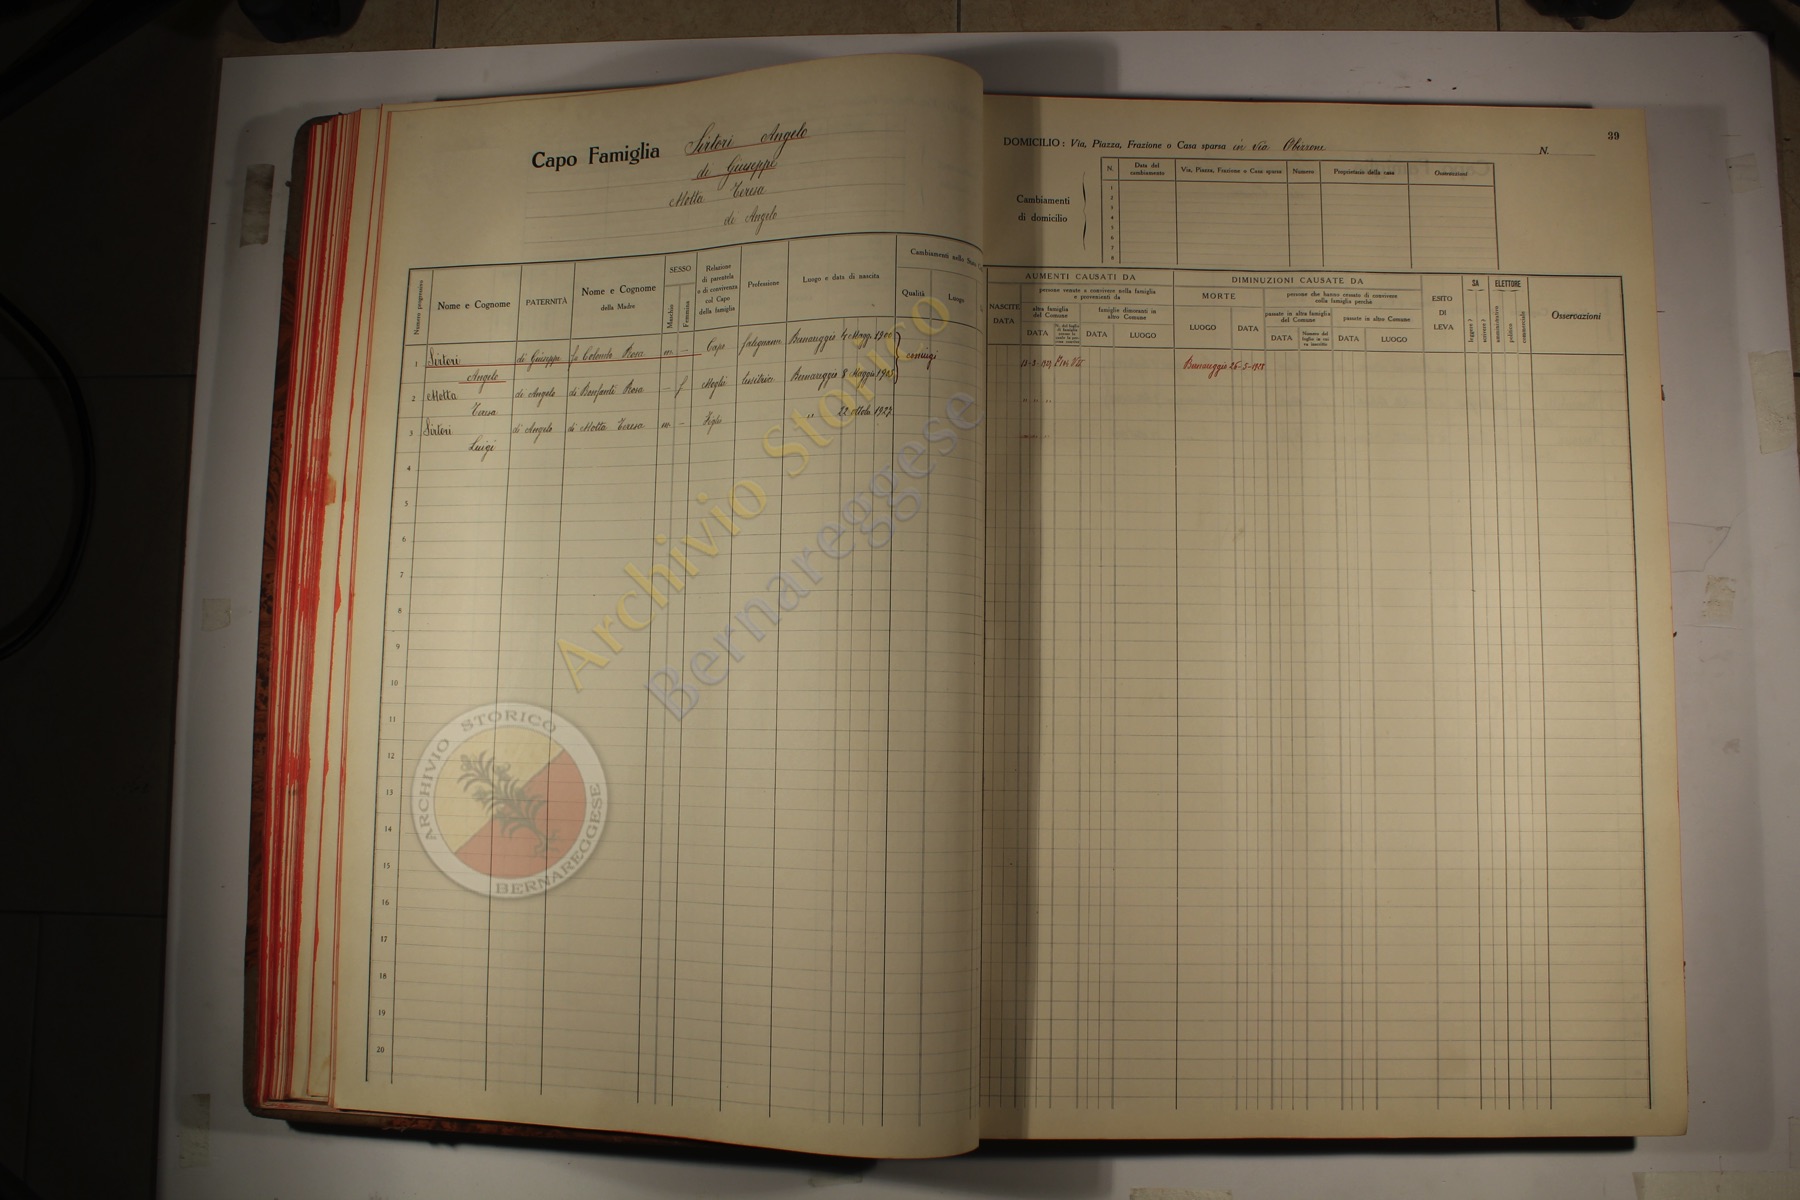 Capo Famiglia Sirtori Angelo
di Giuseppe
Motta Teresa
di Angelo
Numero progressivo
Nome e Cognome
PATERNITÀ
Nome e Cognome della Madre
SESSO
Maschio
Femmina
Relazione di parentela e di convivenza col Capo della famiglia
Professione
Luogo e data di nascita
Cambiamenti nello Stato
Qualità
Luogo
1 Sirtori Angelo di Giuseppe fu Colombo Rosa m. - Capo falegname Bernareggio 4 Maggio 1900 coniugi
2 Motta Teresa di Angelo di Bonfanti Rosa - f Moglie Bernareggio 8 Maggio 1905
3 Sirtori Luigi di Angelo di Motta Teresa m. - Figlio " 22 ottob. 1927
4
5
6
7
8
9
10
11
12
13
14
15
16
17
18
19
20
39
DOMICILIO: Via, Piazza, Frazione o Casa sparsa in via Obizzone N.
Cambiamenti di domicilio
N.
Data del cambiamento
Via, Piazza, Frazione o Casa sparsa
Numero
Proprietario della casa
Osservazioni
1
2
3
4
5
6
7
8
AUMENTI CAUSATI DA
NASCITE
DATA
persone venute a convivere nella famiglia e provenienti da
altra famiglia del Comune
DATA
famiglie dimoranti in altro Comune
DATA
LUOGO
DIMINUZIONI CAUSATE DA
MORTE
LUOGO
DATA
persone che hanno cessato di convivere colla famiglia perchè
passate in altra famiglia del Comune
DATA
Numero del foglio in cui fu inscritto
passate in altro Comune
DATA
LUOGO
ESITO DI LEVA
SA
leggere?
scrivere?
ELETTORE
amministrativo
politico
commerciale
Osservazioni
Bernareggio 26-5-1928
Archivio Storico
Bernareggese
ARCHIVIO STORICO
BERNAREGGESE